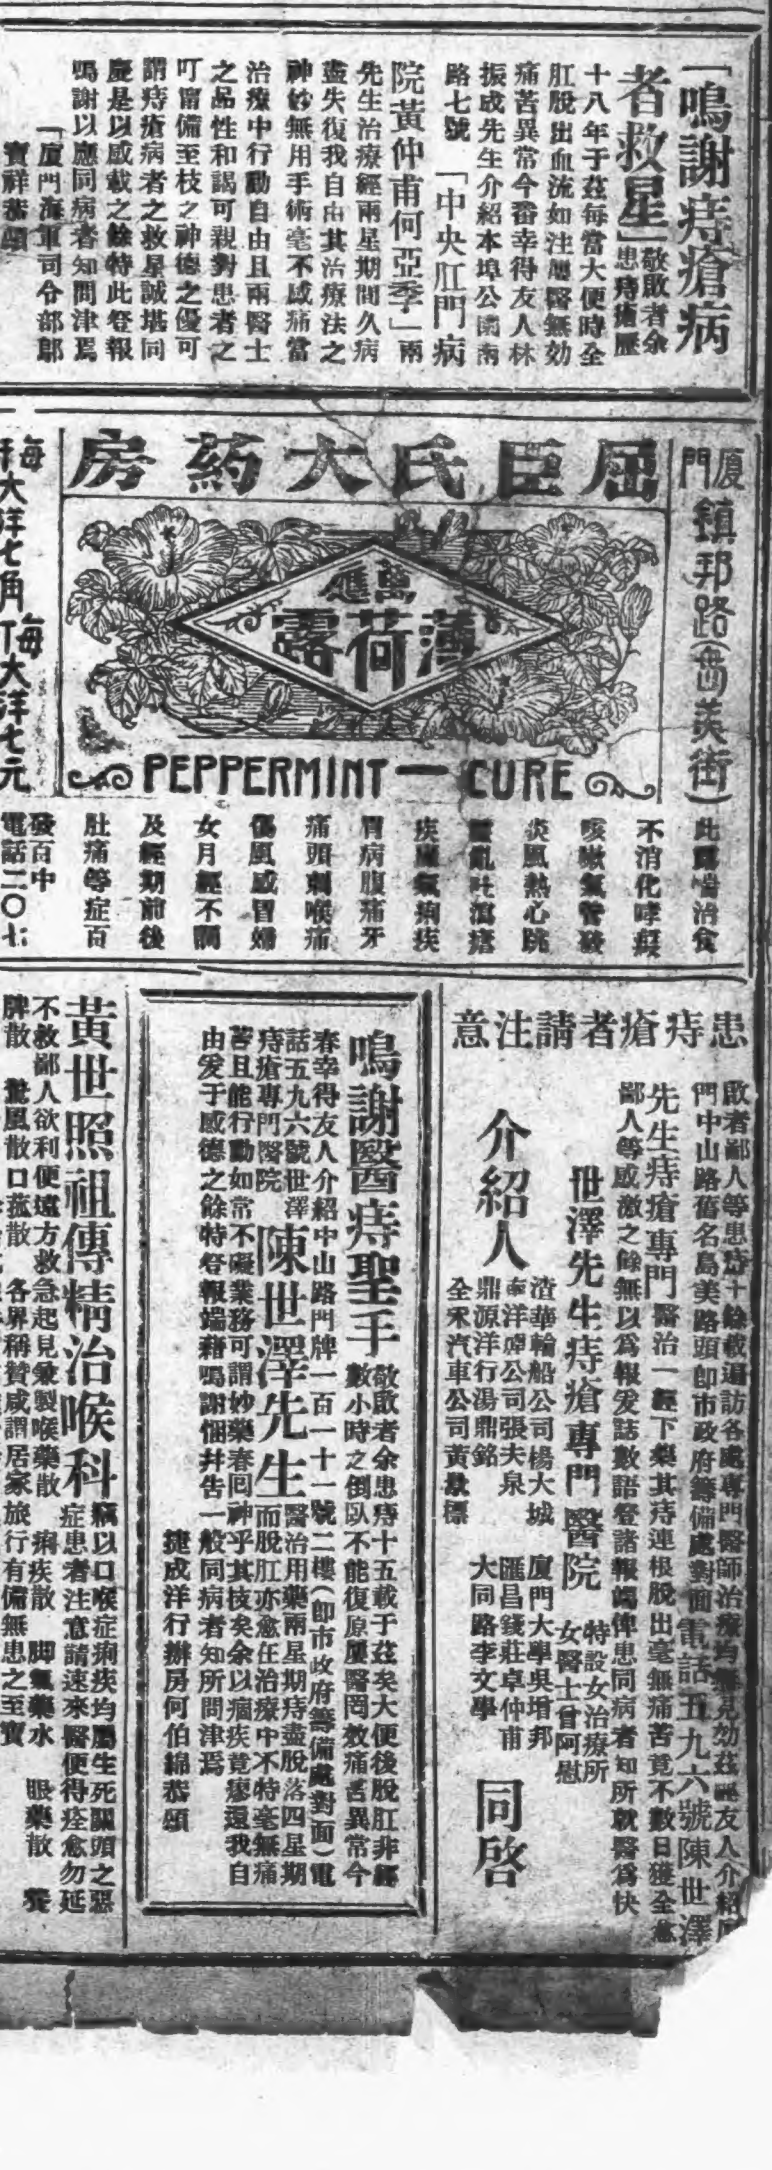 「鳴謝痔瘡病
者救星」
敬啟者余
患痔瘡歷
十八年于茲每當大便時全
肛脫出血流如注屢醫無効
痛苦異常今番幸得友人林
振成先生介紹本埠公園南
路七號「中央肛門病
院黃仲甫何亞季」兩
先生治療經兩星期間久病
盡失復我自由其治療法之
神妙無用手術毫不感痛當
治療中行動自由且兩醫士
之品性和謁可親對患者之
叮嚀備至技之神德之優可
謂痔瘡病者之救星誠堪同
慶是以感載之餘特此登報
鳴謝以應同病者知問津焉
「厦門海軍司令部鄔
寶祥恭頌
厦門
鎮邦路(番美街)
屈臣氏大药房
萬應
薄荷露
PEPPERMINT — CURE
每
大洋七角
每
丁大洋七元
此露耑治食
不消化哮
咳嗽氣管發
炎風熱心跳
亂吐瀉瘧
疾 氣痢疾
胃病腹痛牙
痛頭刺喉痛
傷風感冒婦
女月經不調
及經期前後
肚痛等症百
發百中
電話二〇七
患痔瘡者請注意
敬者鄙人等患痔十餘載遍訪各處專門醫師治療均無見効茲 友人介紹厦
門中山路舊名島美路頭卽市政府籌備處對面電話五九六號陳世澤
先生痔瘡專門醫治一經下藥其痔連根脫出毫無痛苦竟不數日獲全愈
鄙人等感激之餘無以爲報爰誌數語登諸報端俾患同病者知所就醫爲快
世澤先生痔瘡專門醫院
特設女治療所
女醫士曾阿慰
介紹人
渣華輪船公司楊大城
南洋 公司張夫泉
鼎源洋行湯鼎銘
全禾汽車公司黃 標
厦門大學吳增邦
匯昌錢莊卓仲甫
大同路李文學
同啓
鳴謝醫痔聖手
敬啟者余患痔十五載于茲矣大便後脫肛非經
數小時之倒臥不能復原屢醫罔效痛苦異常今
春幸得友人介紹中山路門牌一百一十一號二樓(卽市政府籌備處對面)電
話五九六號世澤
痔瘡專門醫院
陳世澤先生
醫治用藥兩星期痔盡脫落四星期
而脫肛亦愈在治療中不特毫無痛
苦且能行動如常不礙業務可謂妙藥春回神乎其技矣余以痼疾竟瘳還我自
由爰于感德之餘特登報端藉鳴謝悃幷告一般同病者知所問津焉
捷成洋行辦房何伯綿恭頌
黃世照祖傳精治喉科
竊以口喉症痢疾均屬生死關頭之惡
症患者注意請速來醫便得痊愈勿延
不救鄙人欲利便遠方救急起見兼製喉藥散 痢疾散 脚氣藥水 眼藥散
脾散 驚風散口菰散 各界稱贊咸謂居家旅行有備無患之至寶